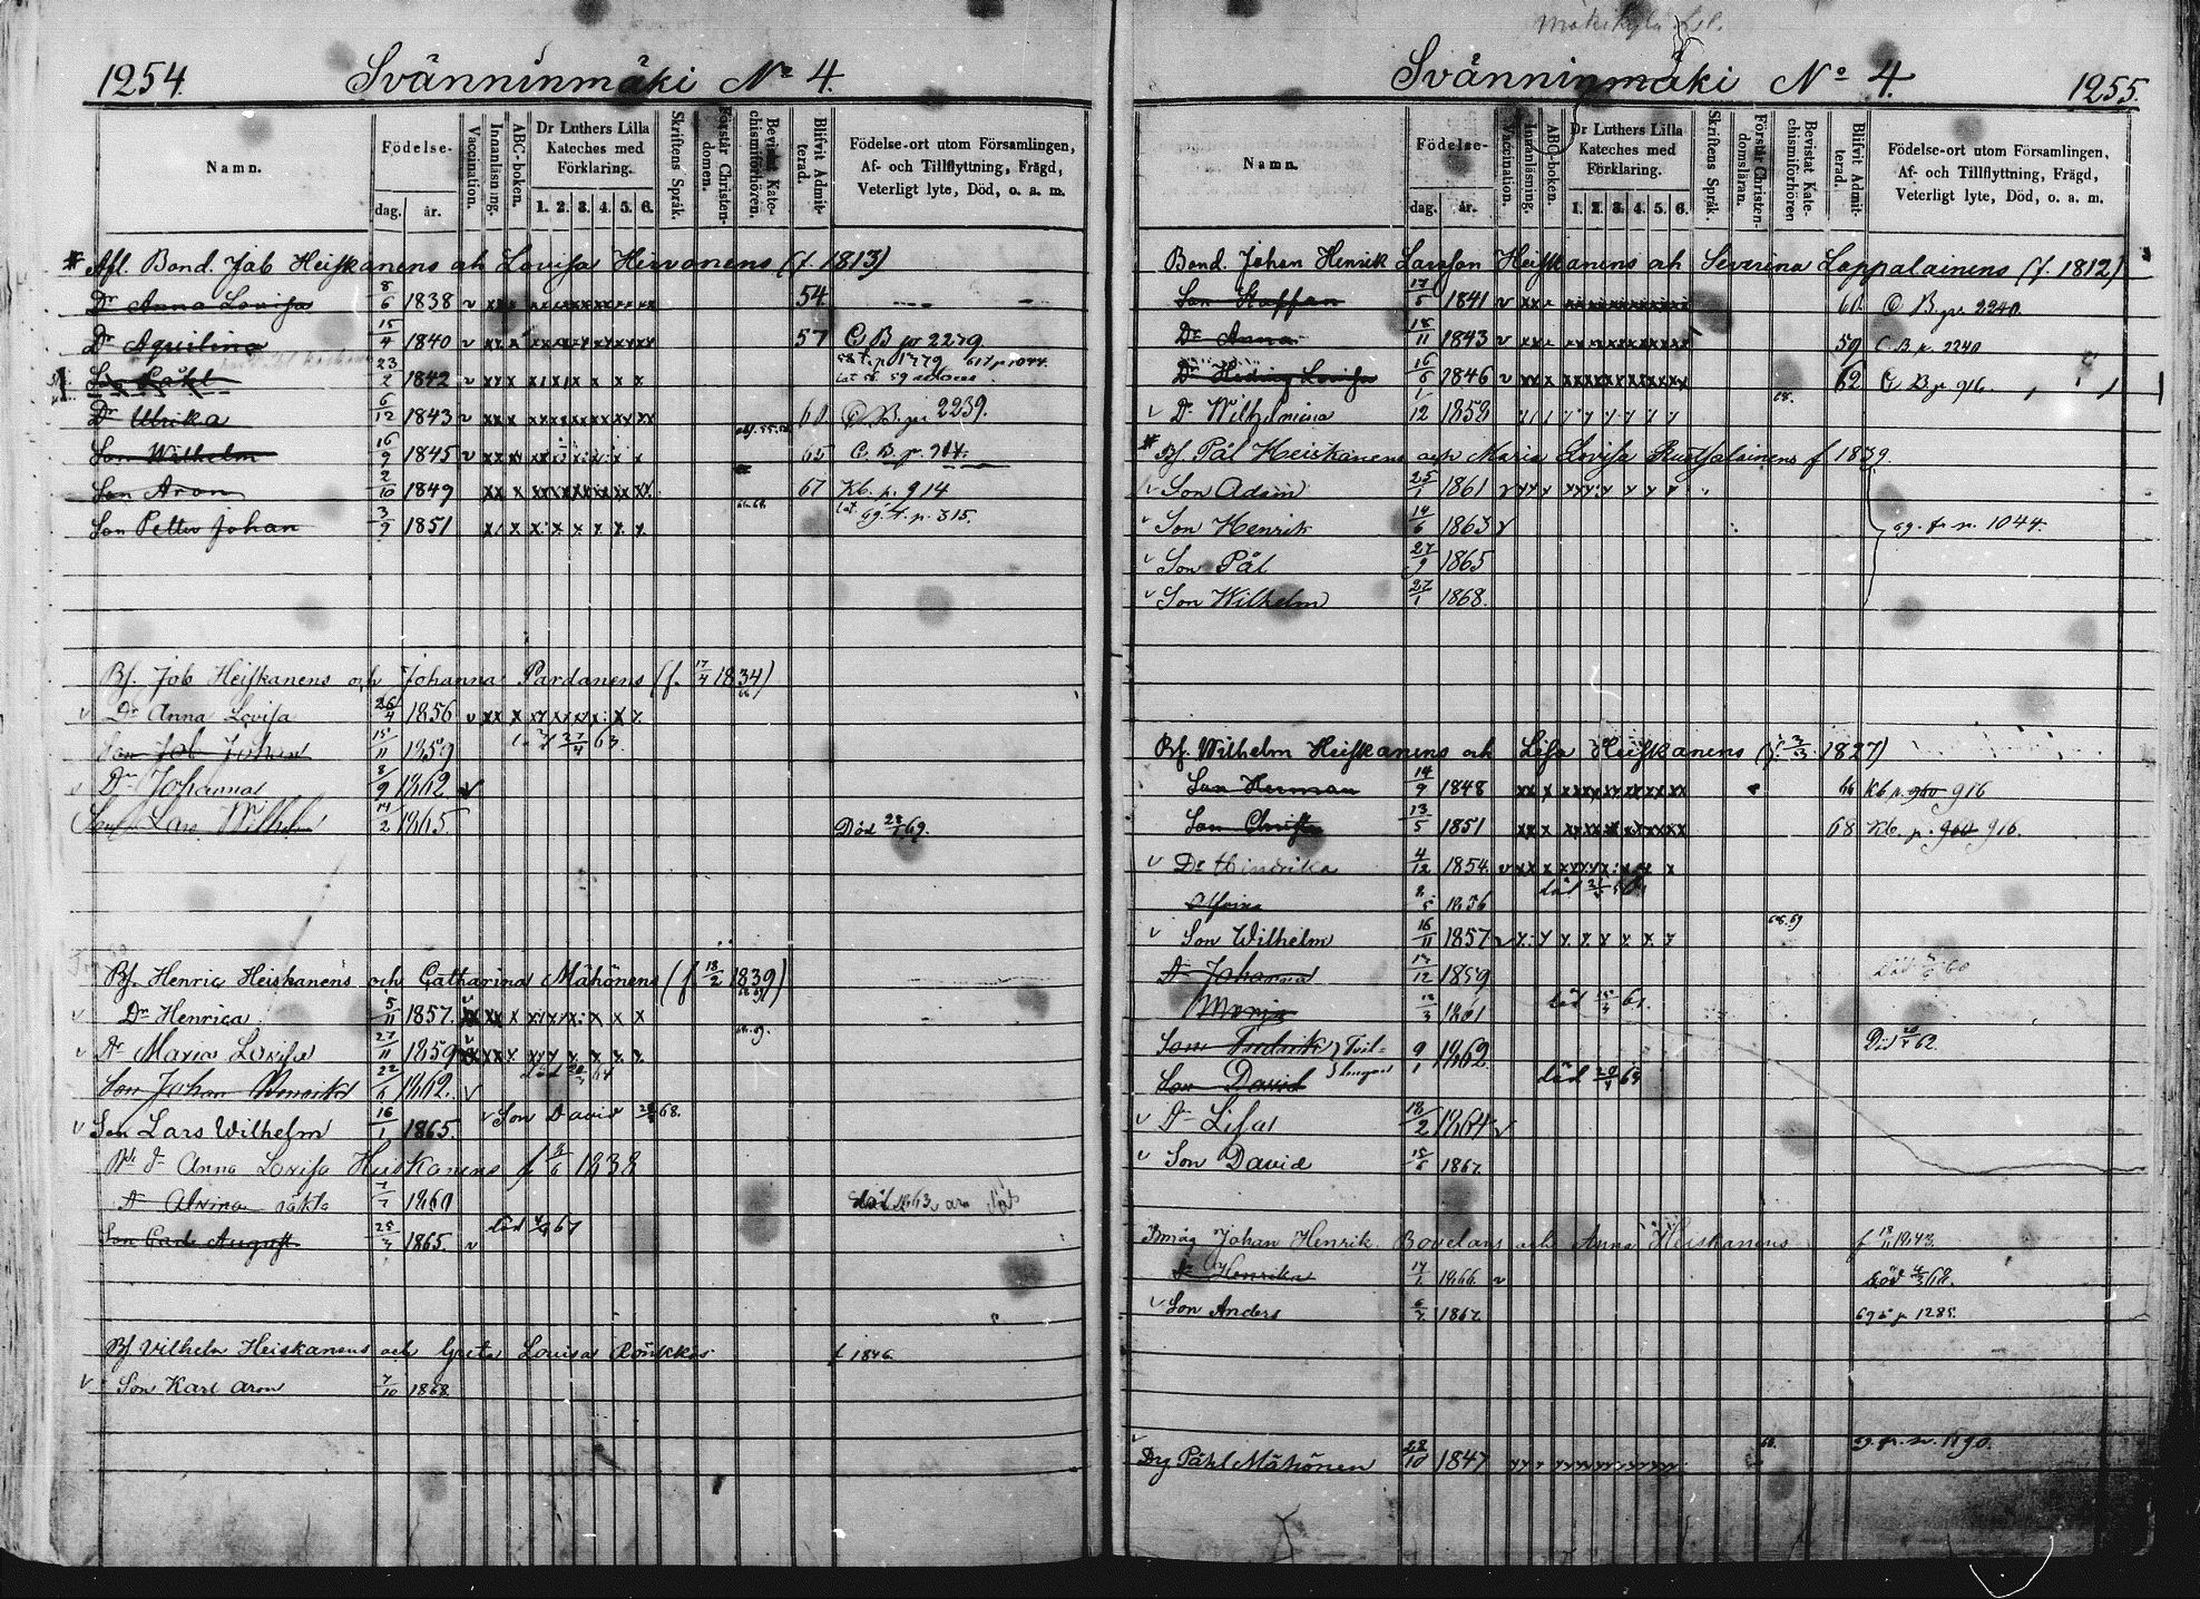 1254. Svänninmäki No 4.
Namn.
Födelse-
dag. år.
Vaccination.
Innanläsning.
ABC-boken.
Dr Luthers Lilla Kateches med Förklaring.
1. 2. 3. 4. 5. 6.
Skriftens Språk.
Förstår Christendomen.
Bevistat Katechismiförhören.
Blifvit Admitterad.
Födelse-ort utom Församlingen,
Af- och Tillflyttning, Frägd,
Veterligt lyte, Död, o. a. m.
Afl. Bond. Job Heiskanens och Lovisa Hirvonens (f. 1813)
Dr Anna Lovisa 8/6 1838 54
Dr Aquilina 15/4 1840 57 C B pr 2279
Son Påhl 23/2 1842
Dr Ulrika 6/12 1843 60 C. B. pr 2239.
Son Wilhelm 16/9 1845 65 C. B. p. 914.
Son Aron 2/10 1849 67 Kb. p. 914
Son Petter Johan 3/9 1851 69. t. p. 315.
Bf. Job Heiskanens och Johanna Pardanens (f. 17/4 1834)
Dr Anna Lovisa 26/4 1856
Son Job Johan 15/11 1859 27/4 63.
Dr Johanna 8/9 1862
Son Lars Wilhelm 14/2 1865. Död 69.
Bf. Henric Heiskanens och Catharina Mähönens (f. 18/2 1839)
Dr Henrica 5/11 1857.
Dr Maria Lovisa 27/11 1859
Son Johan Henrik 22/6 1862.
Son Lars Wilhelm 16/1 1865. Son David 68.
Anna Lovisa Heiskanens f 8/6 1838
Dr Alvina oäkta 7/7 1860 död 1863
Son Carl August 25/3 1865. död 67
Bf Vilhelm Heiskanens och Greta Lovisa Rönkkös f 1846
Son Karl Aron 7/10 1868
Svänninmäki No 4. 1255.
Namn.
Födelse-
dag. år.
Vaccination.
Innanläsning.
ABC-boken.
Dr Luthers Lilla Kateches med Förklaring.
1. 2. 3. 4. 5. 6.
Skriftens Språk.
Förstår Christendomsläran.
Bevistat Katechismiförhören
Blifvit Admitterad.
Födelse-ort utom Församlingen,
Af- och Tillflyttning, Frägd,
Veterligt lyte, Död, o. a. m.
Bond. Johan Henrik Larsson Heiskanens och Severina Lappalainens (f. 1812)
Son Staffan 17/5 1841 60. C B. pr. 2240.
Dr Anna 18/11 1843 59 C B p. 2240
Dr Hedvig Lovisa 16/6 1846 62 C B. p 916.
Dr Wilhelmina 1/12 1858
Bf. Pål Heiskanens och Maria Lovisa Ruotsalainens f 1839.
Son Adam 25/1 1861
Son Henrik 14/6 1863 69. fr n. 1044.
Son Pål 27/9 1865
Son Wilhelm 27/1 1868.
Bf. Wilhelm Heiskanens och Lisa Heiskanens (f. 3/3 1827)
Son Herman 14/9 1848 66 Kb p. 960 916
Son Christer 13/5 1851 68 Kb. p. 960 916.
Dr Hindrika 4/12 1854
1856
Son Wilhelm 16/11 1857
Dr Johanna 12 1859 60
Maria 1861 död 61.
Son Fredrik } Tvillingar 9/1 1862. Död 62.
Son David död 64
Dr Lisa 18/2 1864
Son David 15/6 1867.
Johan Henrik Bovelans och Anna Heiskanens f 18/11 1843.
Dr Henrika 17/1 1866. död 68.
Son Anders 1867. p 1285.
Dr Påhl Mähönen 28/10 1847 p. 1190.